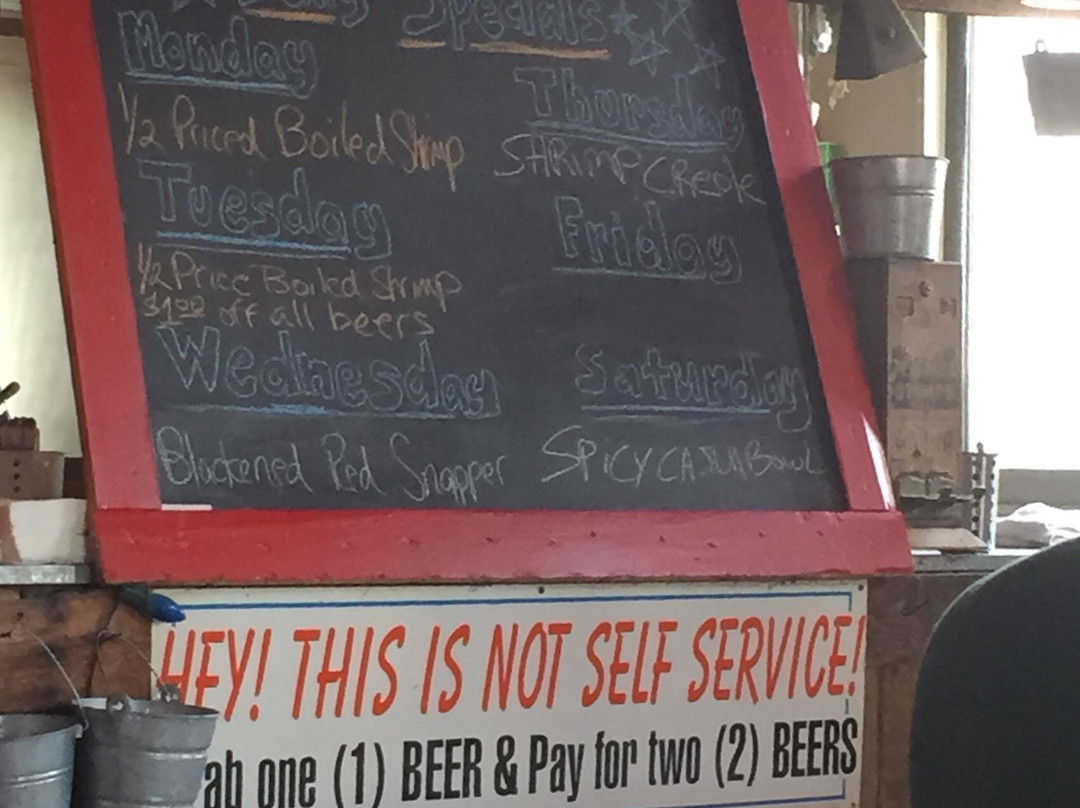 Daily Specials
Monday
1/2 Priced Boiled Shrimp
Tuesday
1/2 Price Boiled Shrimp
$1.00 off all beers
Wednesday
Blackened Red Snapper
Thursday
SHRIMP CREOLE
Friday
Saturday
SPICY CAJUN BOWL
HEY! THIS IS NOT SELF SERVICE!
ab one (1) BEER & Pay for two (2) BEERS